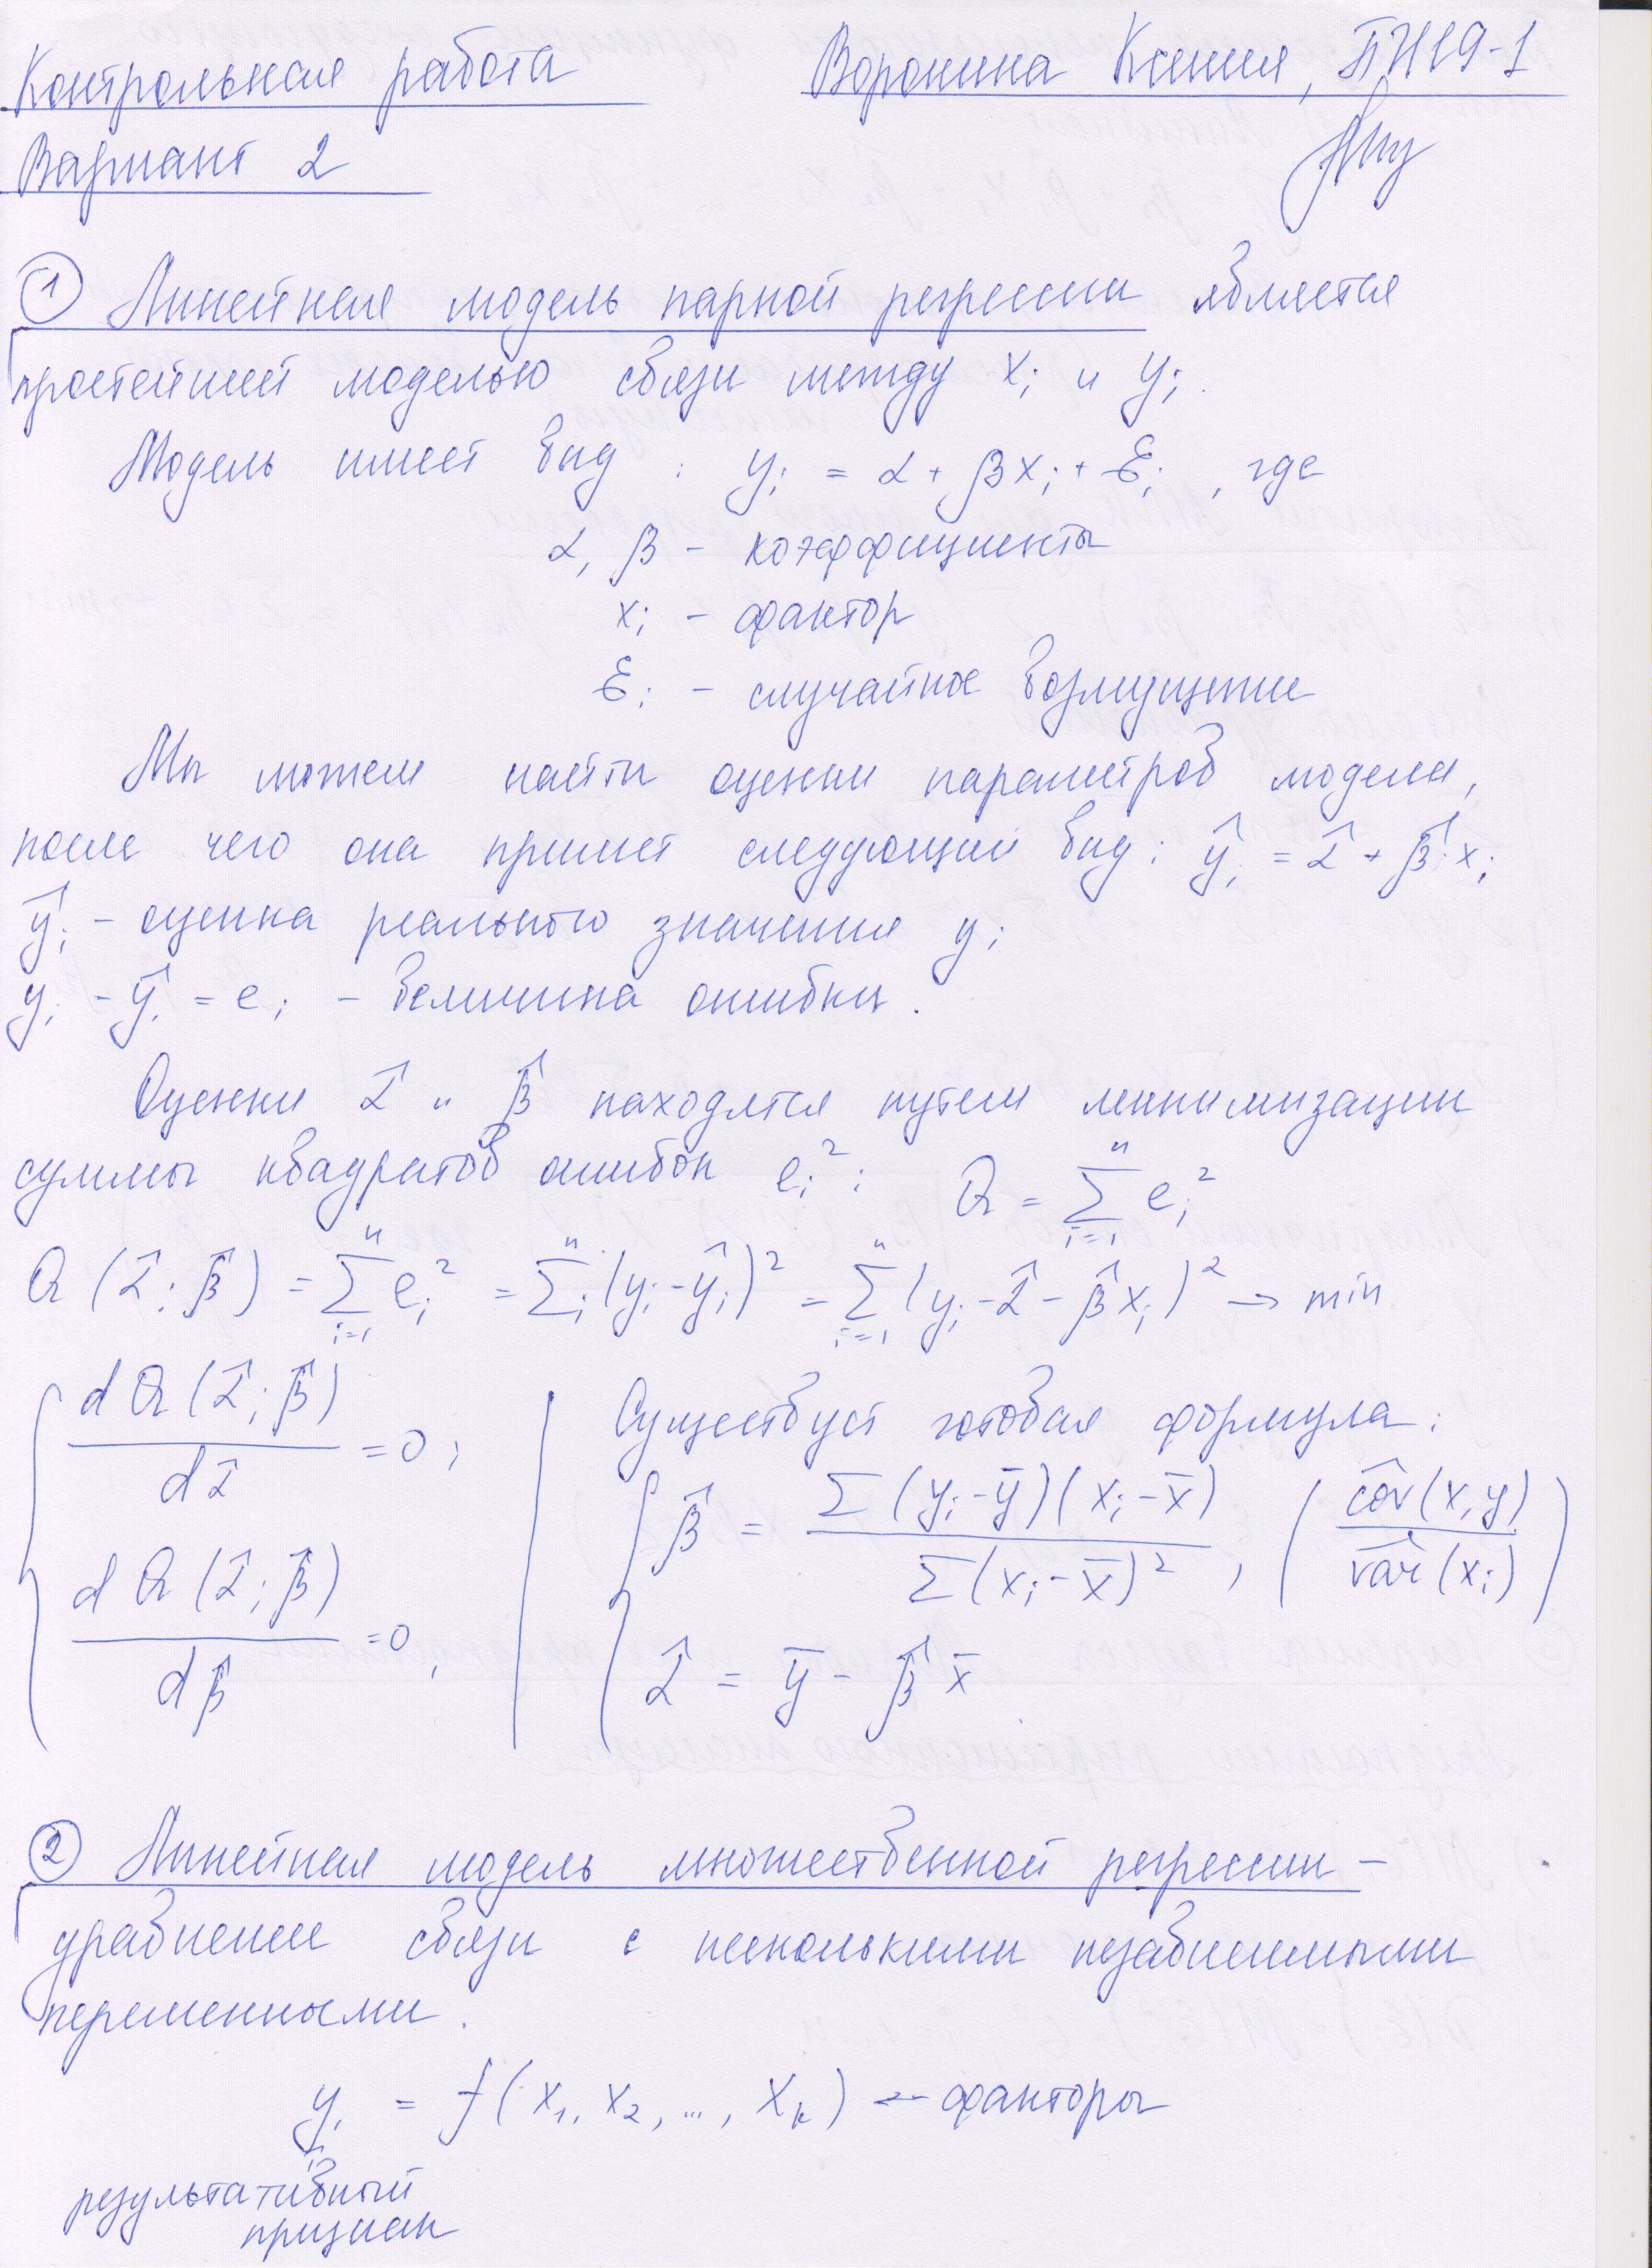 Контрольная работа Воронина Ксения, ПИ19-1
Вариант 2
① Линейная модель парной регрессии является
простейшей моделью связи между xᵢ и yᵢ.
Модель имеет вид: yᵢ = α + βxᵢ + εᵢ, где
α, β - коэффициенты
xᵢ - фактор
εᵢ - случайное возмущение
Мы можем найти оценки параметров модели,
после чего она примет следующий вид: ŷᵢ = α̂ + β̂·xᵢ
ŷᵢ - оценка реального значения yᵢ
yᵢ - ŷᵢ = eᵢ - величина ошибки.
Оценки α̂ и β̂ находятся путем минимизации
суммы квадратов ошибок eᵢ²: Q = Σⁿᵢ₌₁ eᵢ²
Q(α̂; β̂) = Σⁿᵢ₌₁ eᵢ² = Σⁿᵢ (yᵢ - ŷᵢ)² = Σⁿᵢ₌₁ (yᵢ - α̂ - β̂xᵢ)² → min
{ dQ(α̂; β̂) / dα̂ = 0,
{ dQ(α̂; β̂) / dβ̂ = 0,
Существует готовая формула:
{ β̂ = Σ(yᵢ - ȳ)(xᵢ - x̄) / Σ(xᵢ - x̄)², (côv(x,y) / vâr(xᵢ))
{ α̂ = ȳ - β̂x̄
② Линейная модель множественной регрессии -
уравнение связи с несколькими независимыми
переменными.
yᵢ = f(x₁, x₂, ..., xₖ) ← факторы
результативный
признак